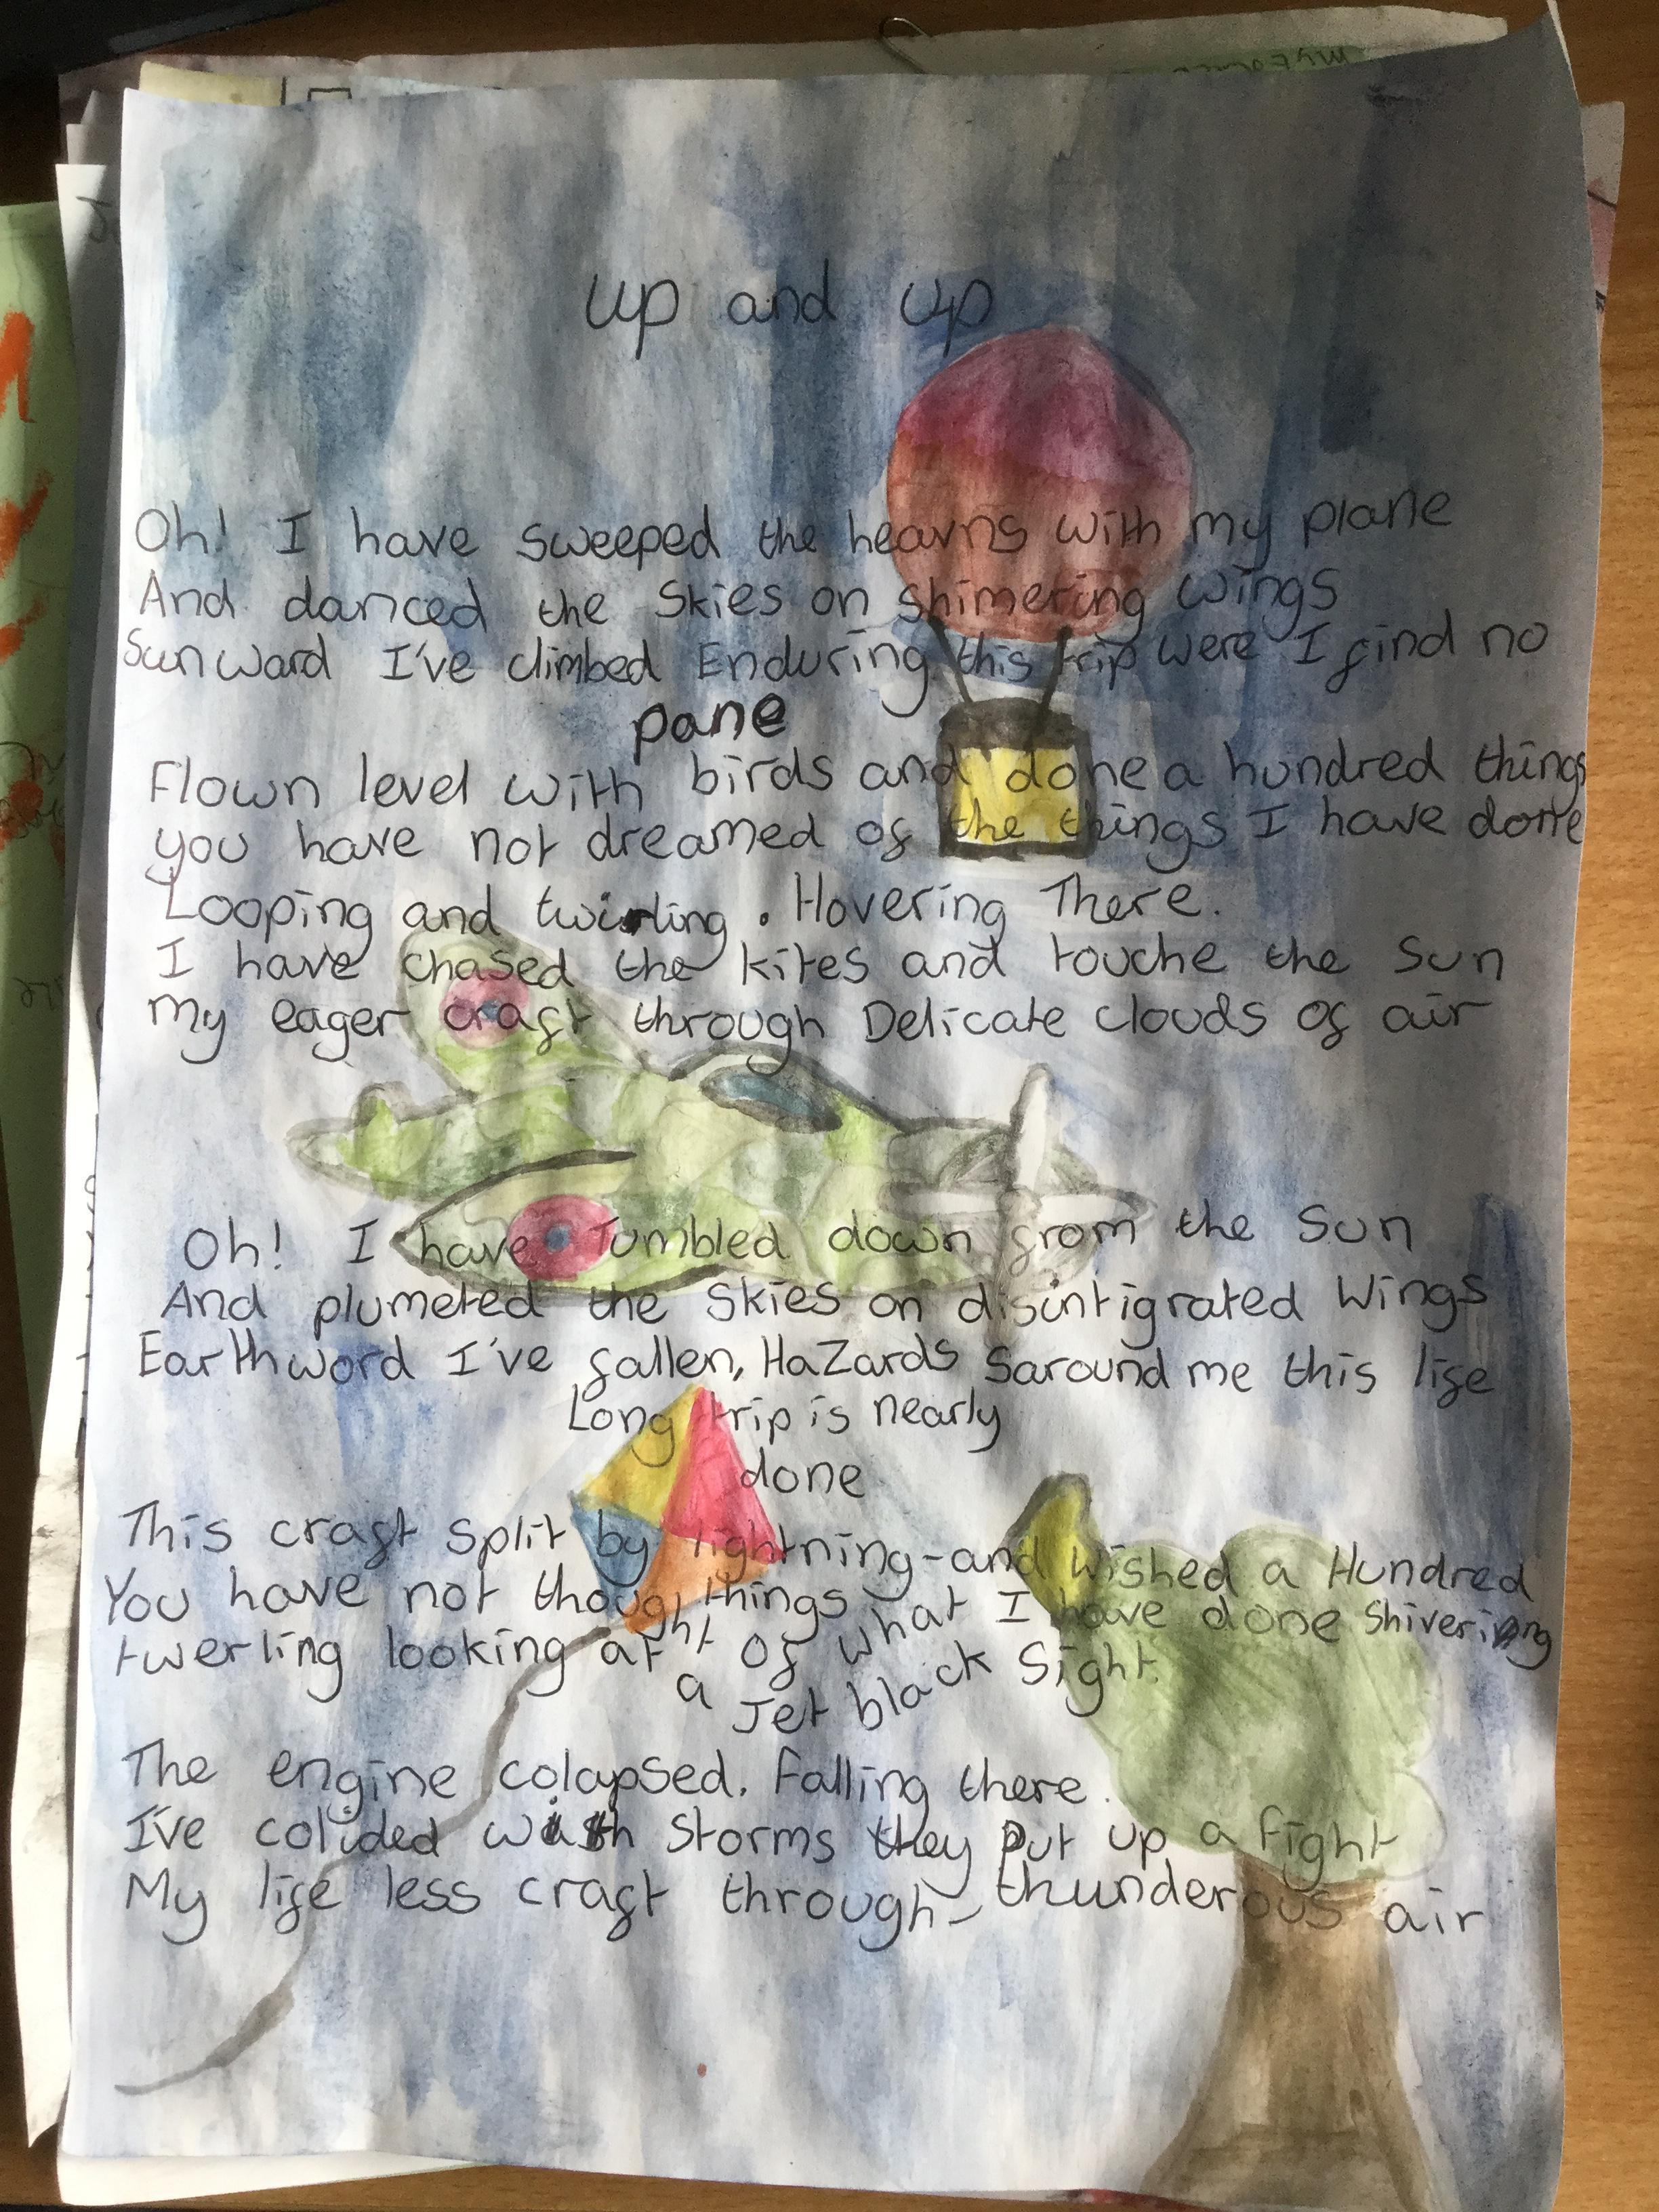 up and up
Oh! I have sweeped the heavns with my plane
And danced the skies on shimering wings
Sunward I've climbed Enduring this trip were I find no
pane
Flown level with birds and done a hundred things
you have not dreamed of the things I have done
Looping and twirling. Hovering There.
I have chased the kites and touche the sun
My eager craft through Delicate clouds of air
Oh! I have Tumbled down from the Sun
And plumeted the skies on disintigrated Wings
Earthword I've fallen, HaZards saround me this life
Long trip is nearly
done
This craft split by lightning-and wished a Hundred
things
You have not thought of what I have done shivering
twerling looking at a Jet black sight.
The engine colapsed. Falling there.
I've colided with storms they put up a fight
My life less craft through- thunderous air